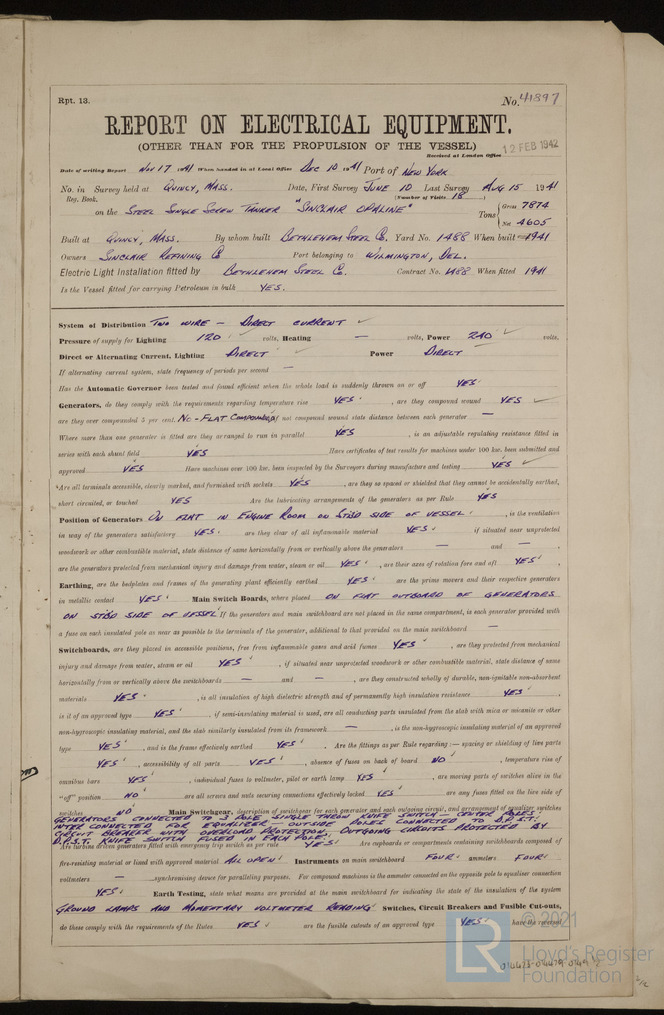 Rpt. 13. No. 41897
REPORT ON ELECTRICAL EQUIPMENT.
(OTHER THAN FOR THE PROPULSION OF THE VESSEL)
Received at London Office 12 FEB 1942
Date of writing Report Nov 17 1941 When handed in at Local Office Dec 10 1941 Port of New York
No. in Survey held at Quincy, Mass. Date, First Survey June 10 Last Survey Aug 15 1941
Reg. Book. (Number of Visits 18)
on the Steel Single Screw Tanker "Sinclair Opaline" Tons { Gross 7874
Net 4605
Built at Quincy, Mass. By whom built Bethlehem Steel Co. Yard No. 1488 When built 1941
Owners Sinclair Refining Co Port belonging to Wilmington, Del.
Electric Light Installation fitted by Bethlehem Steel Co. Contract No. 1488 When fitted 1941
Is the Vessel fitted for carrying Petroleum in bulk YES.
System of Distribution Two wire – Direct current ✓
Pressure of supply for Lighting 120 ✓ volts, Heating — volts, Power 240 ✓ volts.
Direct or Alternating Current, Lighting Direct ✓ Power Direct ✓
If alternating current system, state frequency of periods per second —
Has the Automatic Governor been tested and found efficient when the whole load is suddenly thrown on or off YES
Generators, do they comply with the requirements regarding temperature rise YES ✓, are they compound wound YES ✓
are they over compounded 5 per cent. No - Flat Compounded, if not compound wound state distance between each generator —
Where more than one generator is fitted are they arranged to run in parallel YES, is an adjustable regulating resistance fitted in
series with each shunt field YES Have certificates of test results for machines under 100 kw. been submitted and
approved YES Have machines over 100 kw. been inspected by the Surveyors during manufacture and testing YES ✓
Are all terminals accessible, clearly marked, and furnished with sockets YES ✓, are they so spaced or shielded that they cannot be accidentally earthed,
short circuited, or touched YES Are the lubricating arrangements of the generators as per Rule YES
Position of Generators On flat in Engine Room on Stbd side of vessel, is the ventilation
in way of the generators satisfactory YES are they clear of all inflammable material YES ✓ if situated near unprotected
woodwork or other combustible material, state distance of same horizontally from or vertically above the generators — and —,
are the generators protected from mechanical injury and damage from water, steam or oil YES ✓, are their axes of rotation fore and aft YES ✓,
Earthing, are the bedplates and frames of the generating plant efficiently earthed YES ✓ are the prime movers and their respective generators
in metallic contact YES ✓ Main Switch Boards, where placed On flat outboard of generators
on stbd side of vessel ✓ If the generators and main switchboard are not placed in the same compartment, is each generator provided with
a fuse on each insulated pole as near as possible to the terminals of the generator, additional to that provided on the main switchboard —
Switchboards, are they placed in accessible positions, free from inflammable gases and acid fumes YES ✓, are they protected from mechanical
injury and damage from water, steam or oil YES ✓, if situated near unprotected woodwork or other combustible material, state distance of same
horizontally from or vertically above the switchboards — and —, are they constructed wholly of durable, non-ignitable non-absorbent
materials YES, is all insulation of high dielectric strength and of permanently high insulation resistance YES ✓,
is it of an approved type YES ✓, if semi-insulating material is used, are all conducting parts insulated from the slab with mica or micanite or other
non-hygroscopic insulating material, and the slab similarly insulated from its framework —, is the non-hygroscopic insulating material of an approved
type YES ✓, and is the frame effectively earthed YES ✓. Are the fittings as per Rule regarding :— spacing or shielding of live parts
YES ✓, accessibility of all parts YES ✓, absence of fuses on back of board NO ✓, temperature rise of
omnibus bars YES ✓, individual fuses to voltmeter, pilot or earth lamp YES ✓, are moving parts of switches alive in the
"off" position NO ✓ are all screws and nuts securing connections effectively locked YES ✓ are any fuses fitted on the live side of
switches NO ✓ Main Switchgear, description of switchgear for each generator and each outgoing circuit, and arrangement of equalizer switches
Generators connected to 3 pole single throw knife switch – center poles
inter connected for equalizer – outside poles connected to D.P.S.T.
circuit breaker with overload protection. Outgoing circuits protected by
D.P.S.T. knife switch fused in each pole.
Are turbine driven generators fitted with emergency trip switch as per rule YES ✓ Are cupboards or compartments containing switchboards composed of
fire-resisting material or lined with approved material All open ✓ Instruments on main switchboard Four ✓ ammeters Four ✓
voltmeters — synchronising device for paralleling purposes. For compound machines is the ammeter connected on the opposite pole to equaliser connection
YES ✓ Earth Testing, state what means are provided at the main switchboard for indicating the state of the insulation of the system
Ground lamps and momentary voltmeter reading ✓ Switches, Circuit Breakers and Fusible Cut-outs,
do these comply with the requirements of the Rules YES ✓ are the fusible cutouts of an approved type YES ✓ have the reversed
© 2021
LR Lloyd's Register
Foundation